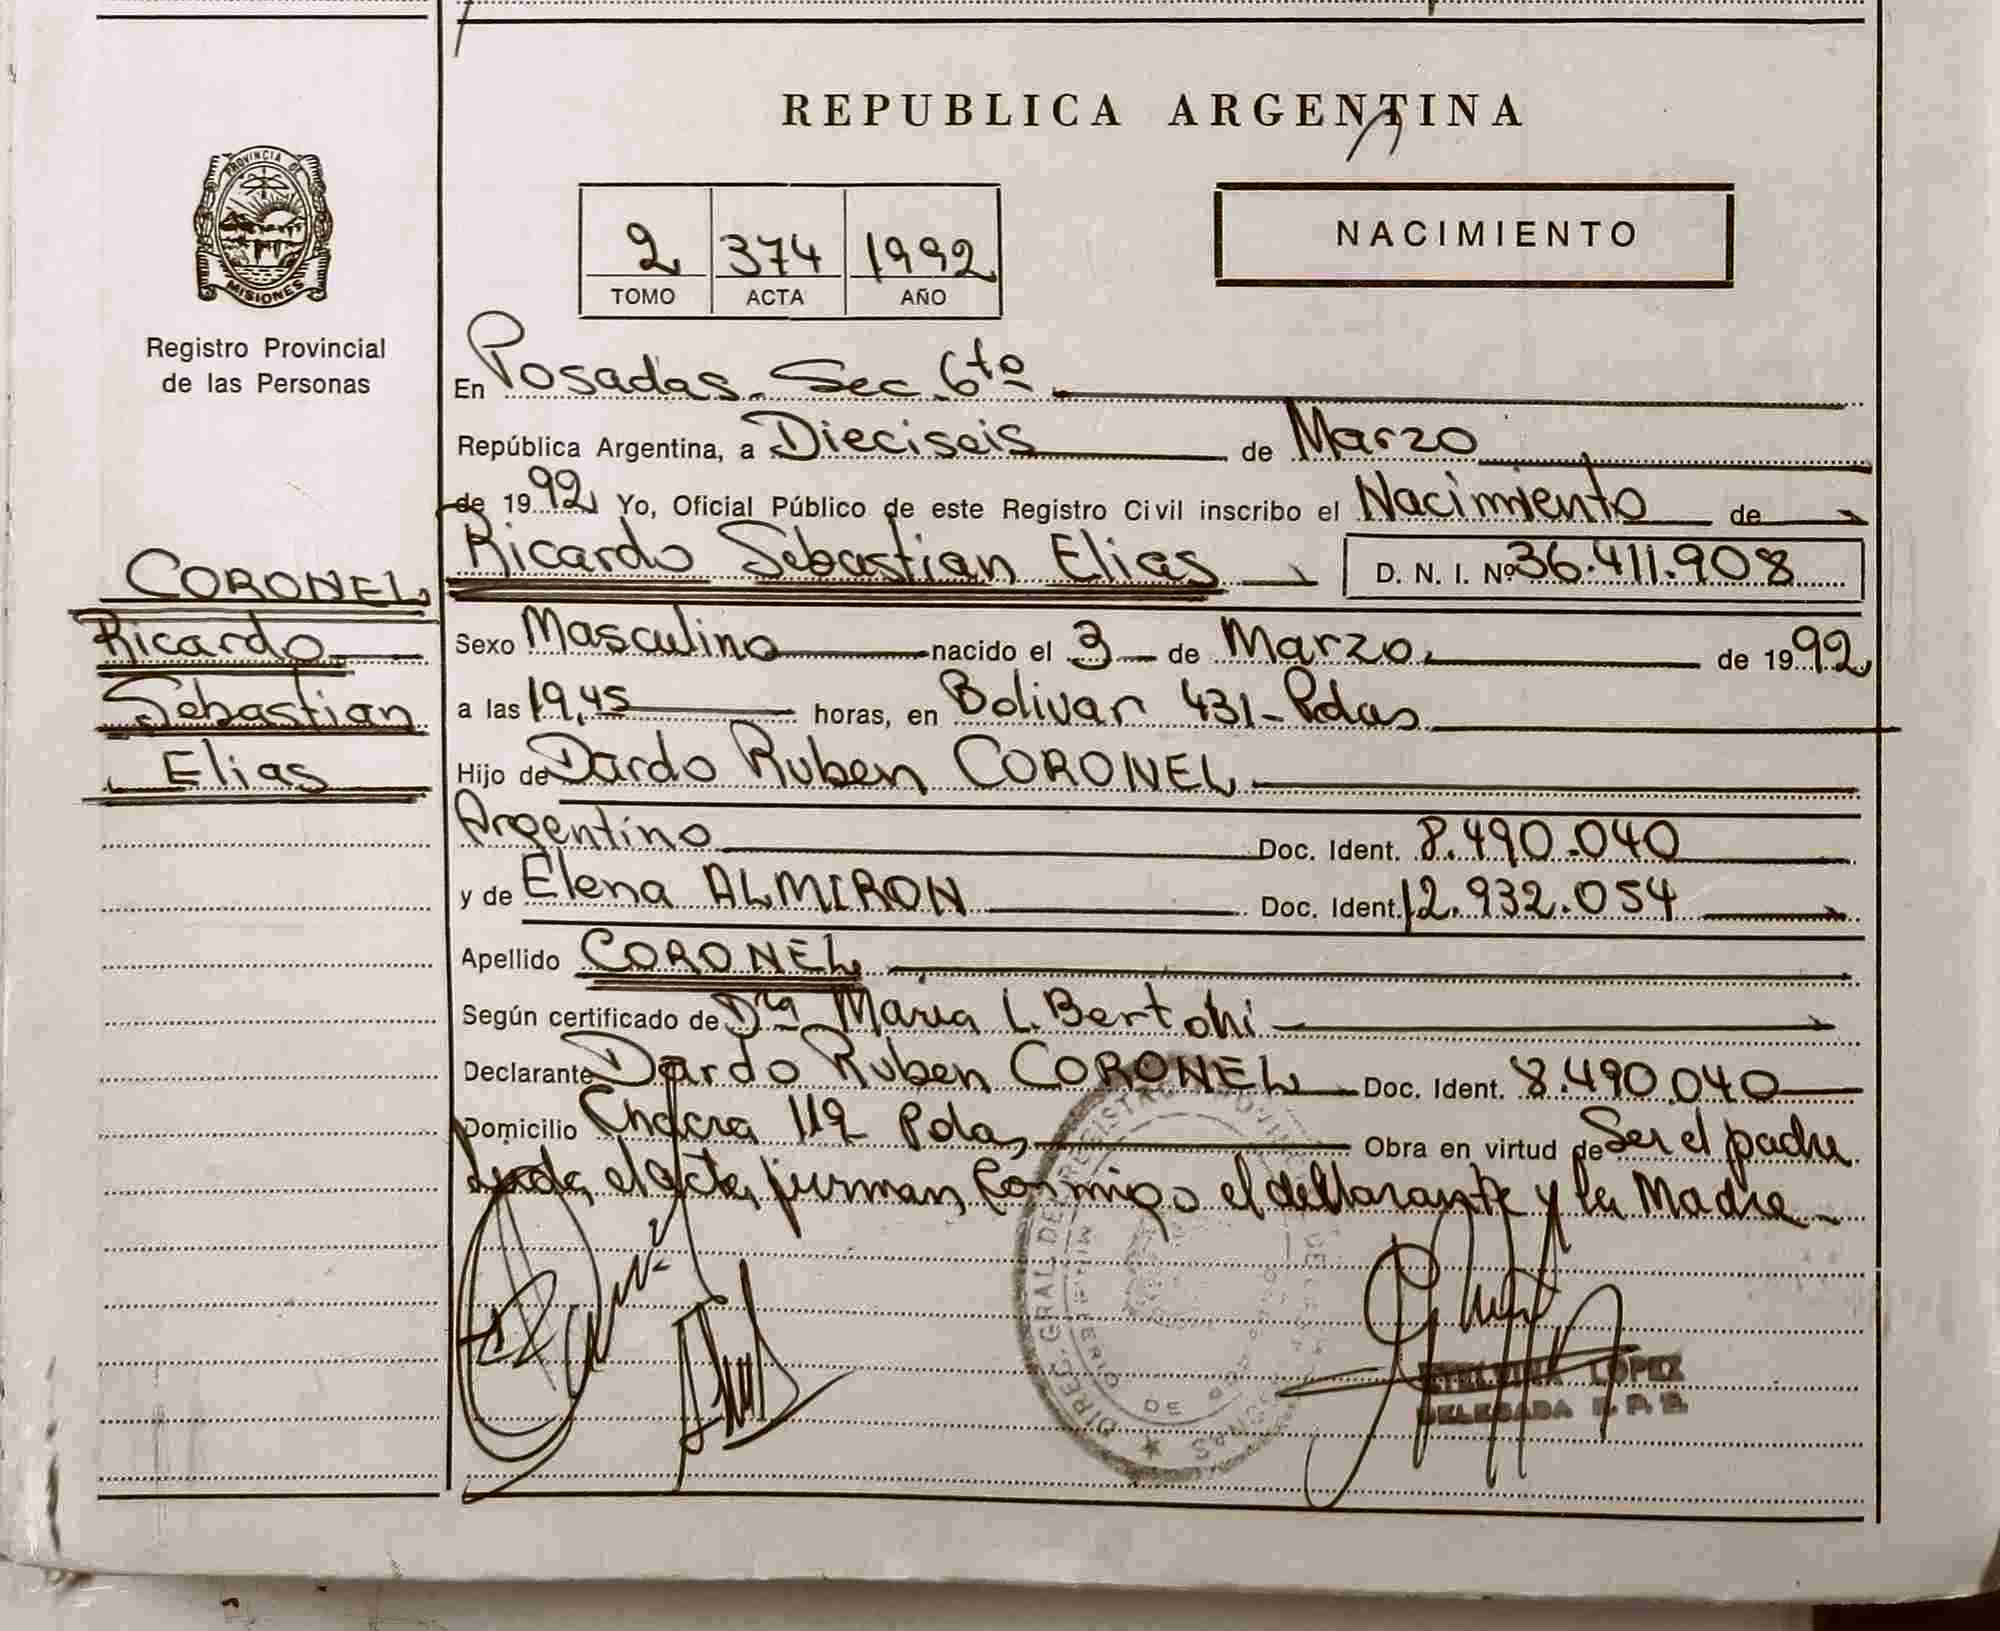 REPUBLICA ARGENTINA
PROVINCIA DE
MISIONES
Registro Provincial
de las Personas
2 374 1992
TOMO ACTA AÑO
NACIMIENTO
En Posadas. Sec. 6ta
República Argentina, a Dieciseis de Marzo
de 1992 Yo, Oficial Público de este Registro Civil inscribo el Nacimiento de
Ricardo Sebastian Elias D. N. I. Nº 36.411.908
CORONEL
Ricardo
Sebastian
Elias
Sexo Masculino nacido el 3 de Marzo de 1992
a las 19,45 horas, en Bolivar 431 - Pdas
Hijo de Dardo Ruben CORONEL
Argentino Doc. Ident. 8.490.040
y de Elena ALMIRON Doc. Ident. 12.932.054
Apellido CORONEL
Según certificado de Dra Maria L. Bertoni
Declarante Dardo Ruben CORONEL Doc. Ident. 8.490.040
Domicilio Chacra 112 Pdas Obra en virtud de Ser el padre
el acta, firman conmigo el declarante y la Madre
DIREC. GRAL. DE REGISTRO
DE
LOPEZ
DELEGADA R. P. P.